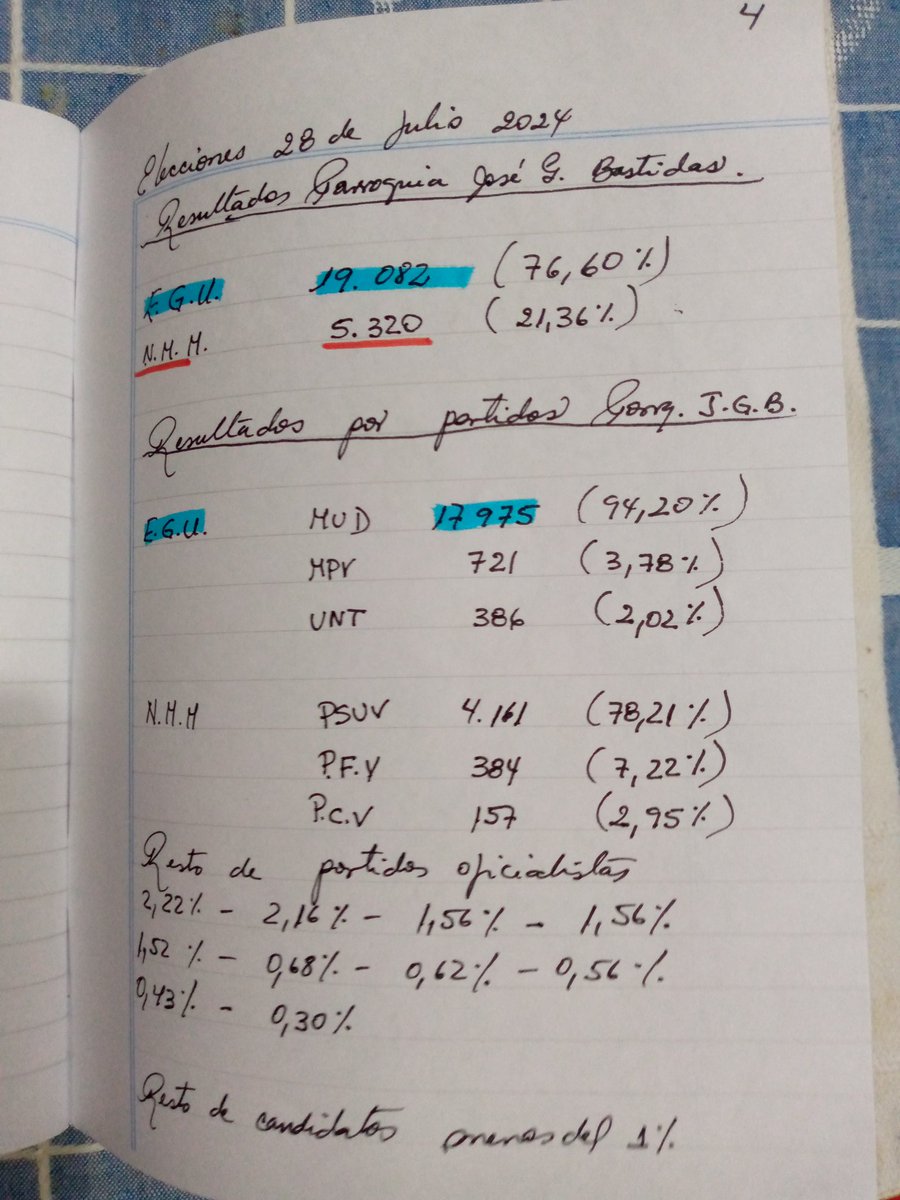 4
Elecciones 28 de Julio 2024
Resultados Parroquia José G. Bastidas.
E.G.U. 19.082 (76,60%)
N.M.M. 5.320 (21,36%)
Resultados por partidos Parrq. J.G.B.
E.G.U. MUD 17975 (94,20%)
MPV 721 (3,78%)
UNT 386 (2,02%)
N.M.M PSUV 4.161 (78,21%)
P.F.V 384 (7,22%)
P.C.V 157 (2,95%)
Resto de partidos oficialistas
2,22% - 2,16% - 1,56% - 1,56%
1,52% - 0,68% - 0,62% - 0,56%
0,43% - 0,30%
Resto de candidatos menos del 1%